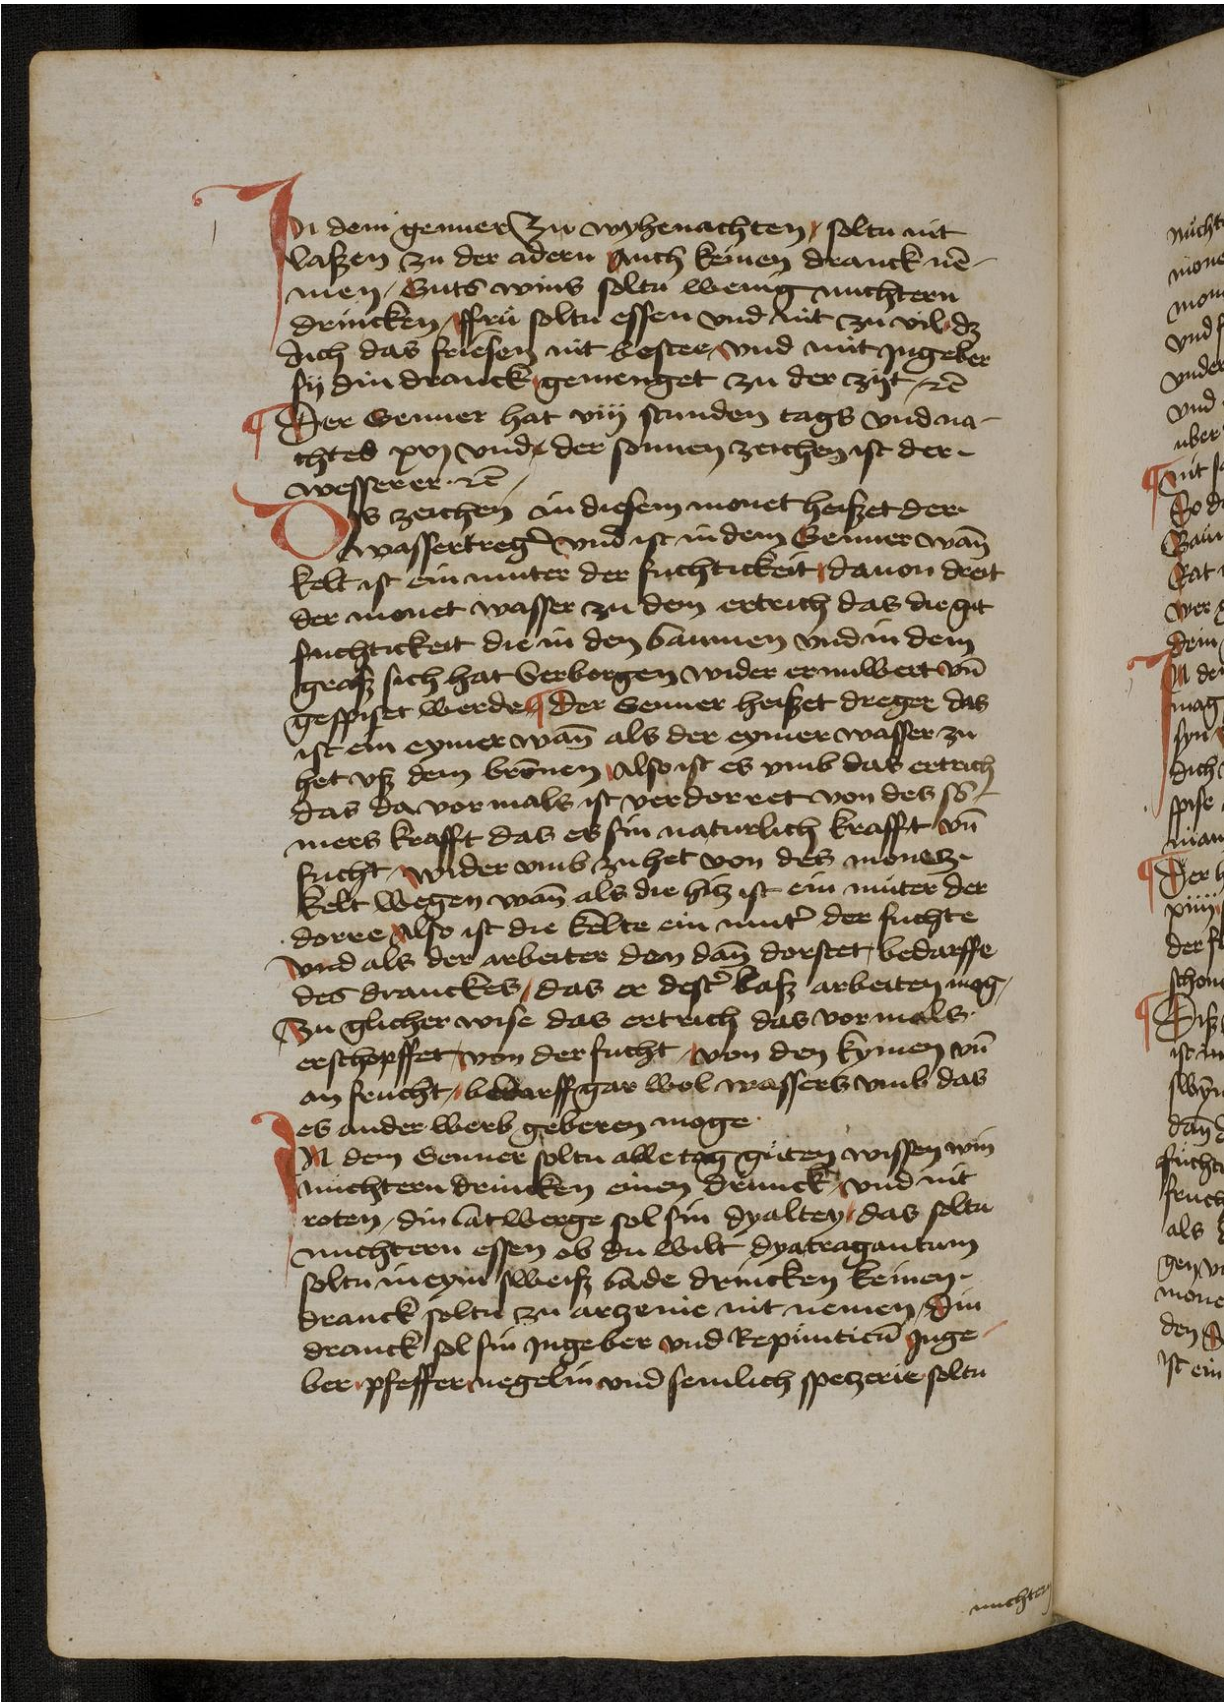 In dem genner Zu wyhenachten / soltu nit
laßen zu der adern Auch keinen dranck nē-
men / Guts wins soltu wenig nuchtern
drincken / ffrü soltu essen vnd nit zu vil dz
dich das friesen nit bester vnd mit Jngeber
sij din dranck gemenget zu der zijt / rē
¶ Der Genner hat viij stunden tags vnd na-
chtes xvj vnd der sonnen zeichen ist der-
wesserer · rē /
Diß zeichen in diesem monet heißet der-
wassertreg' vnd ist in dem Genner wañ
kelt ist ein muter der fuchtickeit / dauon dreit
der monet wasser zu dem ertrich das die git
fuchtickeit die in den baumen vnd in dem
graß sich hat Verborgen wider ernuwert vñ
gespiset werde ¶ Der Genner heißet dreger das
ist ein eymer wañ als der eymer wasser zu
het vß dem brönen Also ist es vmb das ertrich
das da vormals ist verdorret von des sö-
mers krafft das es sin naturlich krafft vñ
fucht / wider vmb zu het von des monetz-
kelt wegen wañ als die hitz ist ein muter der
dorre Also ist die kelte ein mut' der fuchte
vnd als der arbeiter den dañ dorstet / bedarffe
des dranckes / das er dest' baß arbeiten mog /
Zu glicher wise das ertrich das vormals
erschopffet / von der fucht / von den kymen vñ
an frucht / bedarff gar wol wassers vmb das
es ander werb geberen moge ·
In dem Genner soltu alle tag guten wissen win
nuchtern drincken einen drunck / vnd nit
roten / din latwerge sol sin dyaltey / das soltu
nuchtern essen ob du wilt dyatragantum
soltu in eym sweiß bade drincken keinen-
dranck soltu zu arzenie nit nemen / din
dranck sol sin Jngeber vnd Reponticū Jnge
ber pfeffer negelin vnd semlich spetzerie soltu
nuchtern